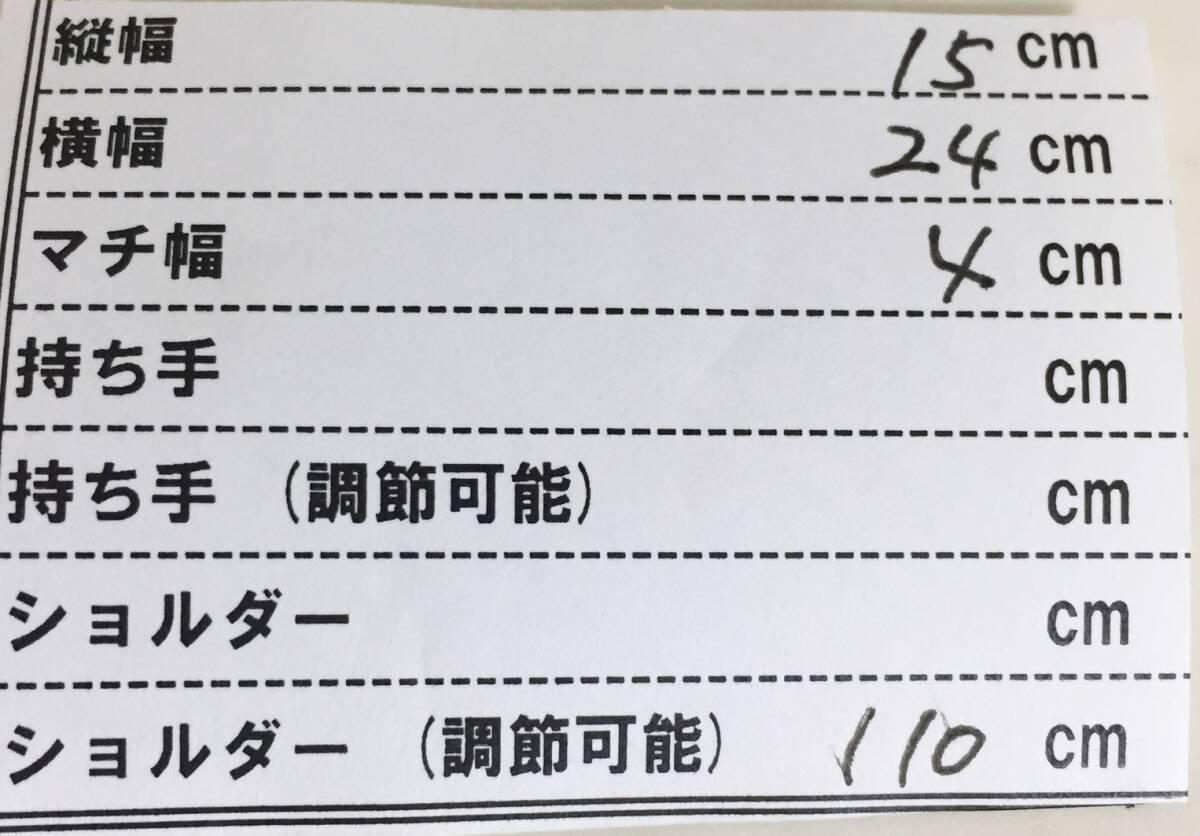 縦幅 15 cm
横幅 24 cm
マチ幅 4 cm
持ち手 cm
持ち手 (調節可能) cm
ショルダー cm
ショルダー (調節可能) 110 cm